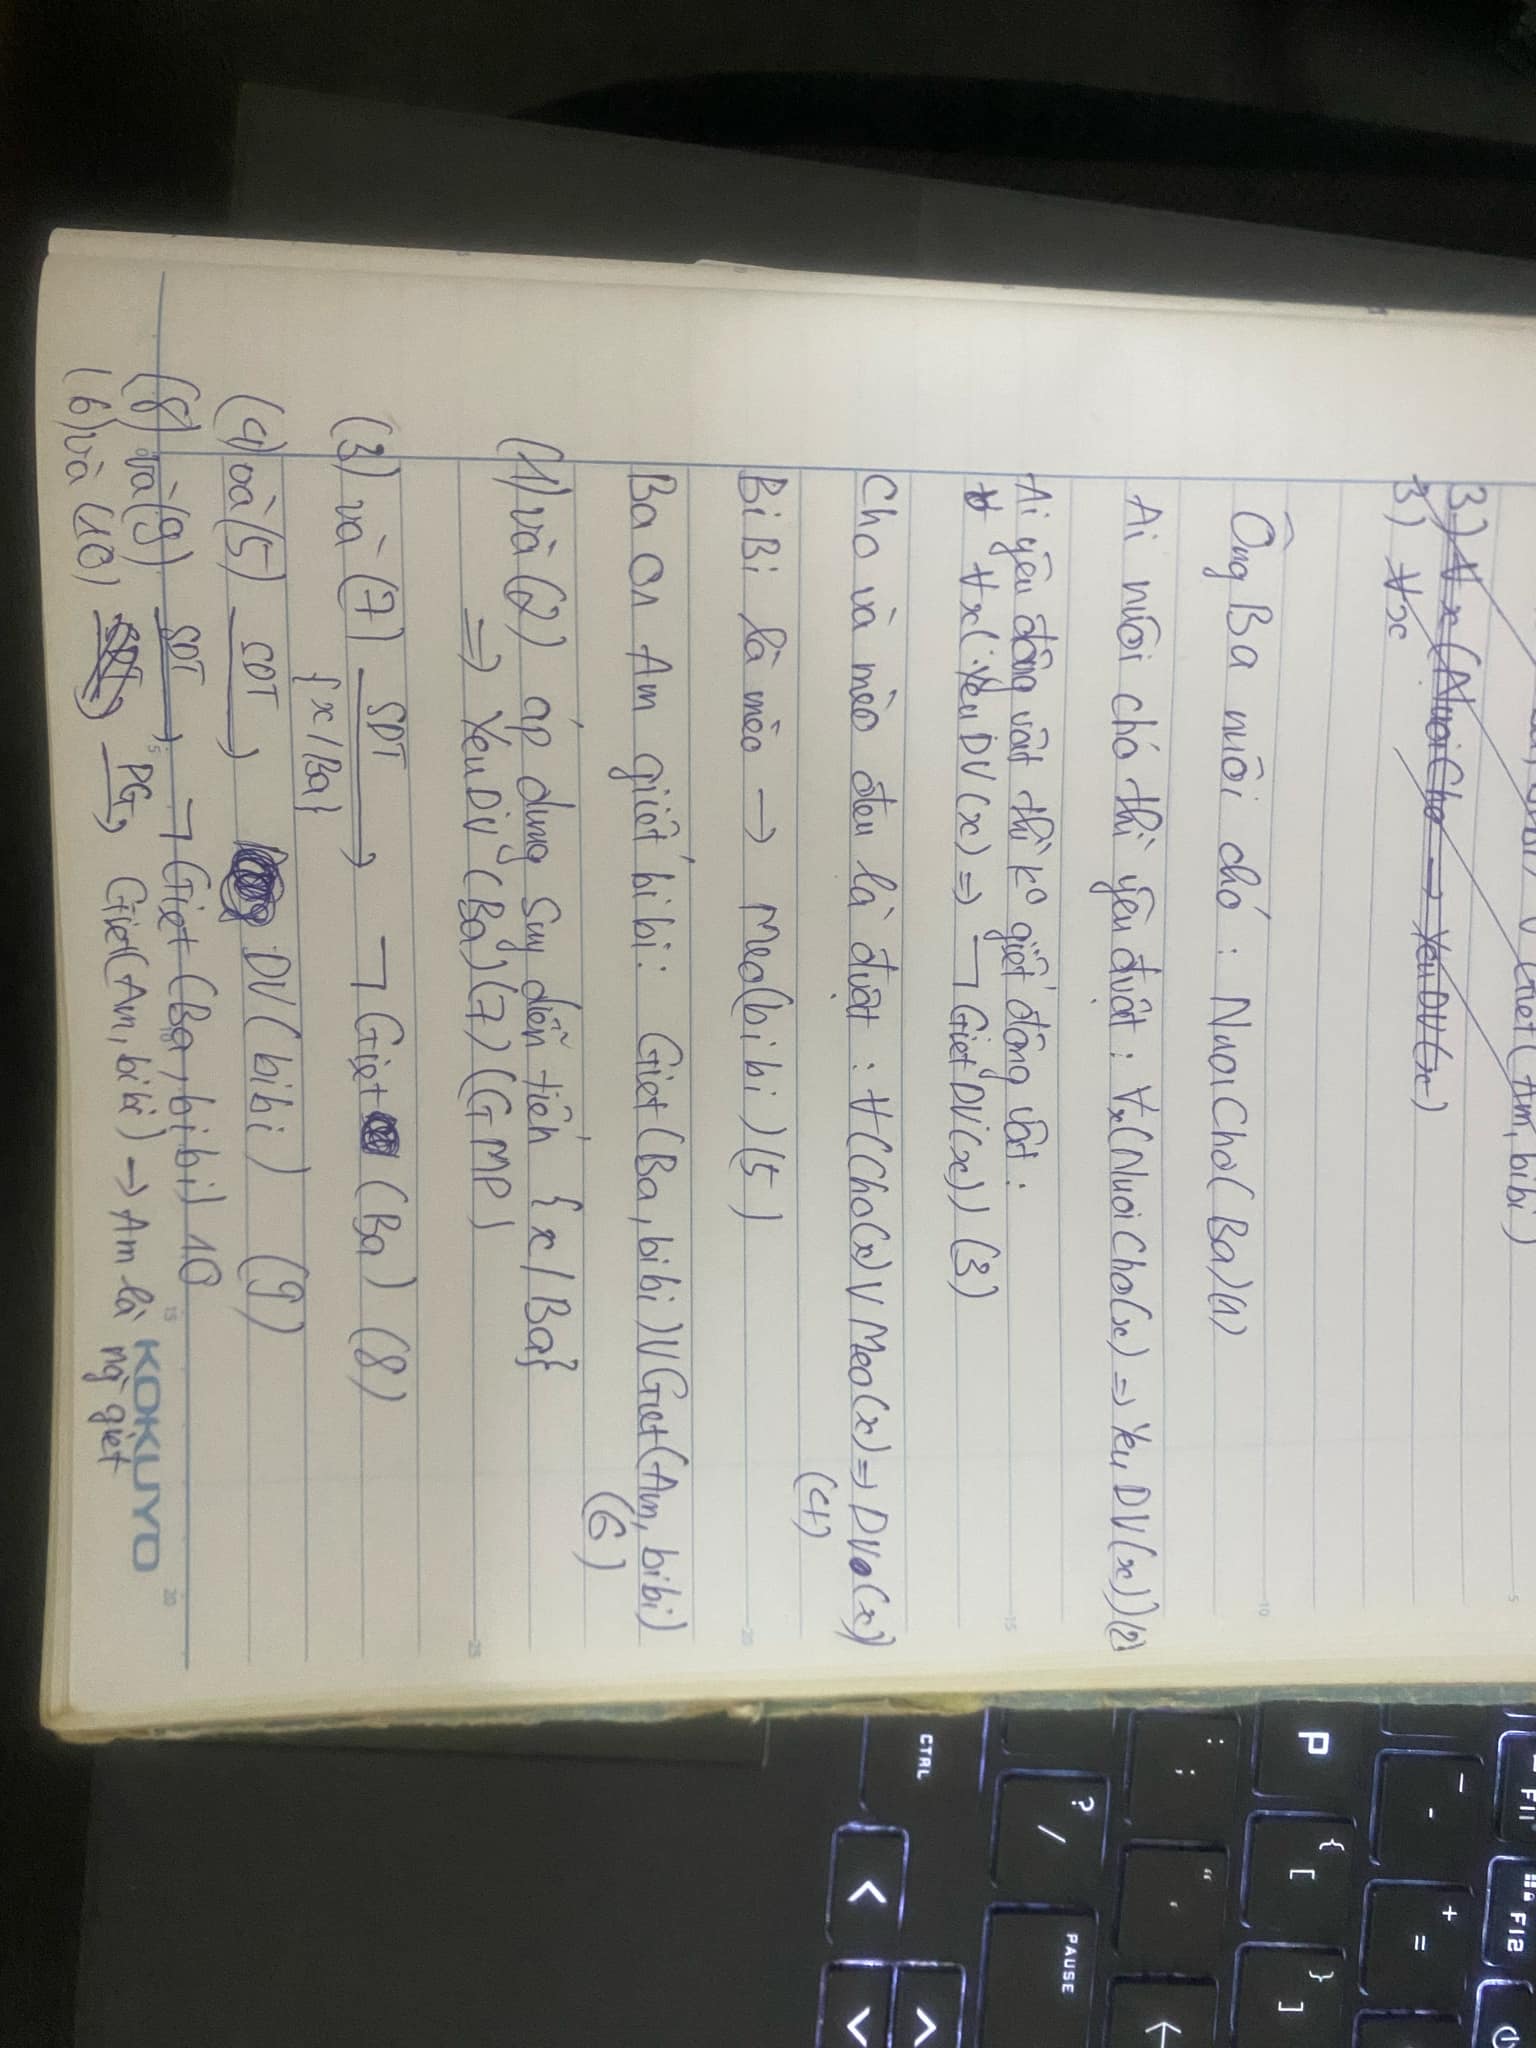 bibi) V Giet(Am, bibi)
3) ∀x(NuoiCho → YeuDV(x)
3) ∀x
Ông Ba nuôi chó : NuoiCho(Ba)(1)
Ai nuôi chó thì yêu đvật : ∀x(NuoiCho(x) => YeuDV(x))(2)
Ai yêu động vật thì ko giết động vật :
∀ ∀x(YeuDV(x) => ¬GietDV(x)) (3)
Cho và mèo đều là đvật : ∀(Cho(x) V Meo(x) => DV(x)
(4)
BiBi là mèo → Meo(bibi)(5)
Ba or Am giiết bibi: Giet(Ba, bibi) V Giet(Am, bibi)
(6)
(1) và (2) áp dụng Suy diễn tiến {x/Ba}
=> YeuDV(Ba)(7)(GMP)
(3) và (7) SDT → ¬Giet (Ba) (8)
{x/Ba}
(4) và (5) SDT → DV(bibi) (9)
(8) và (9) SDT → ¬Giet(Ba, bibi) 10
(6) và (10) SDT PG → Giet(Am, bibi) → Am là ng giet
KOKUYO
F11
F12
- -
+ =
P
{ [
} ]
: ;
? /
PAUSE
CTRL
5
10
15
20
25
5
10
15
20